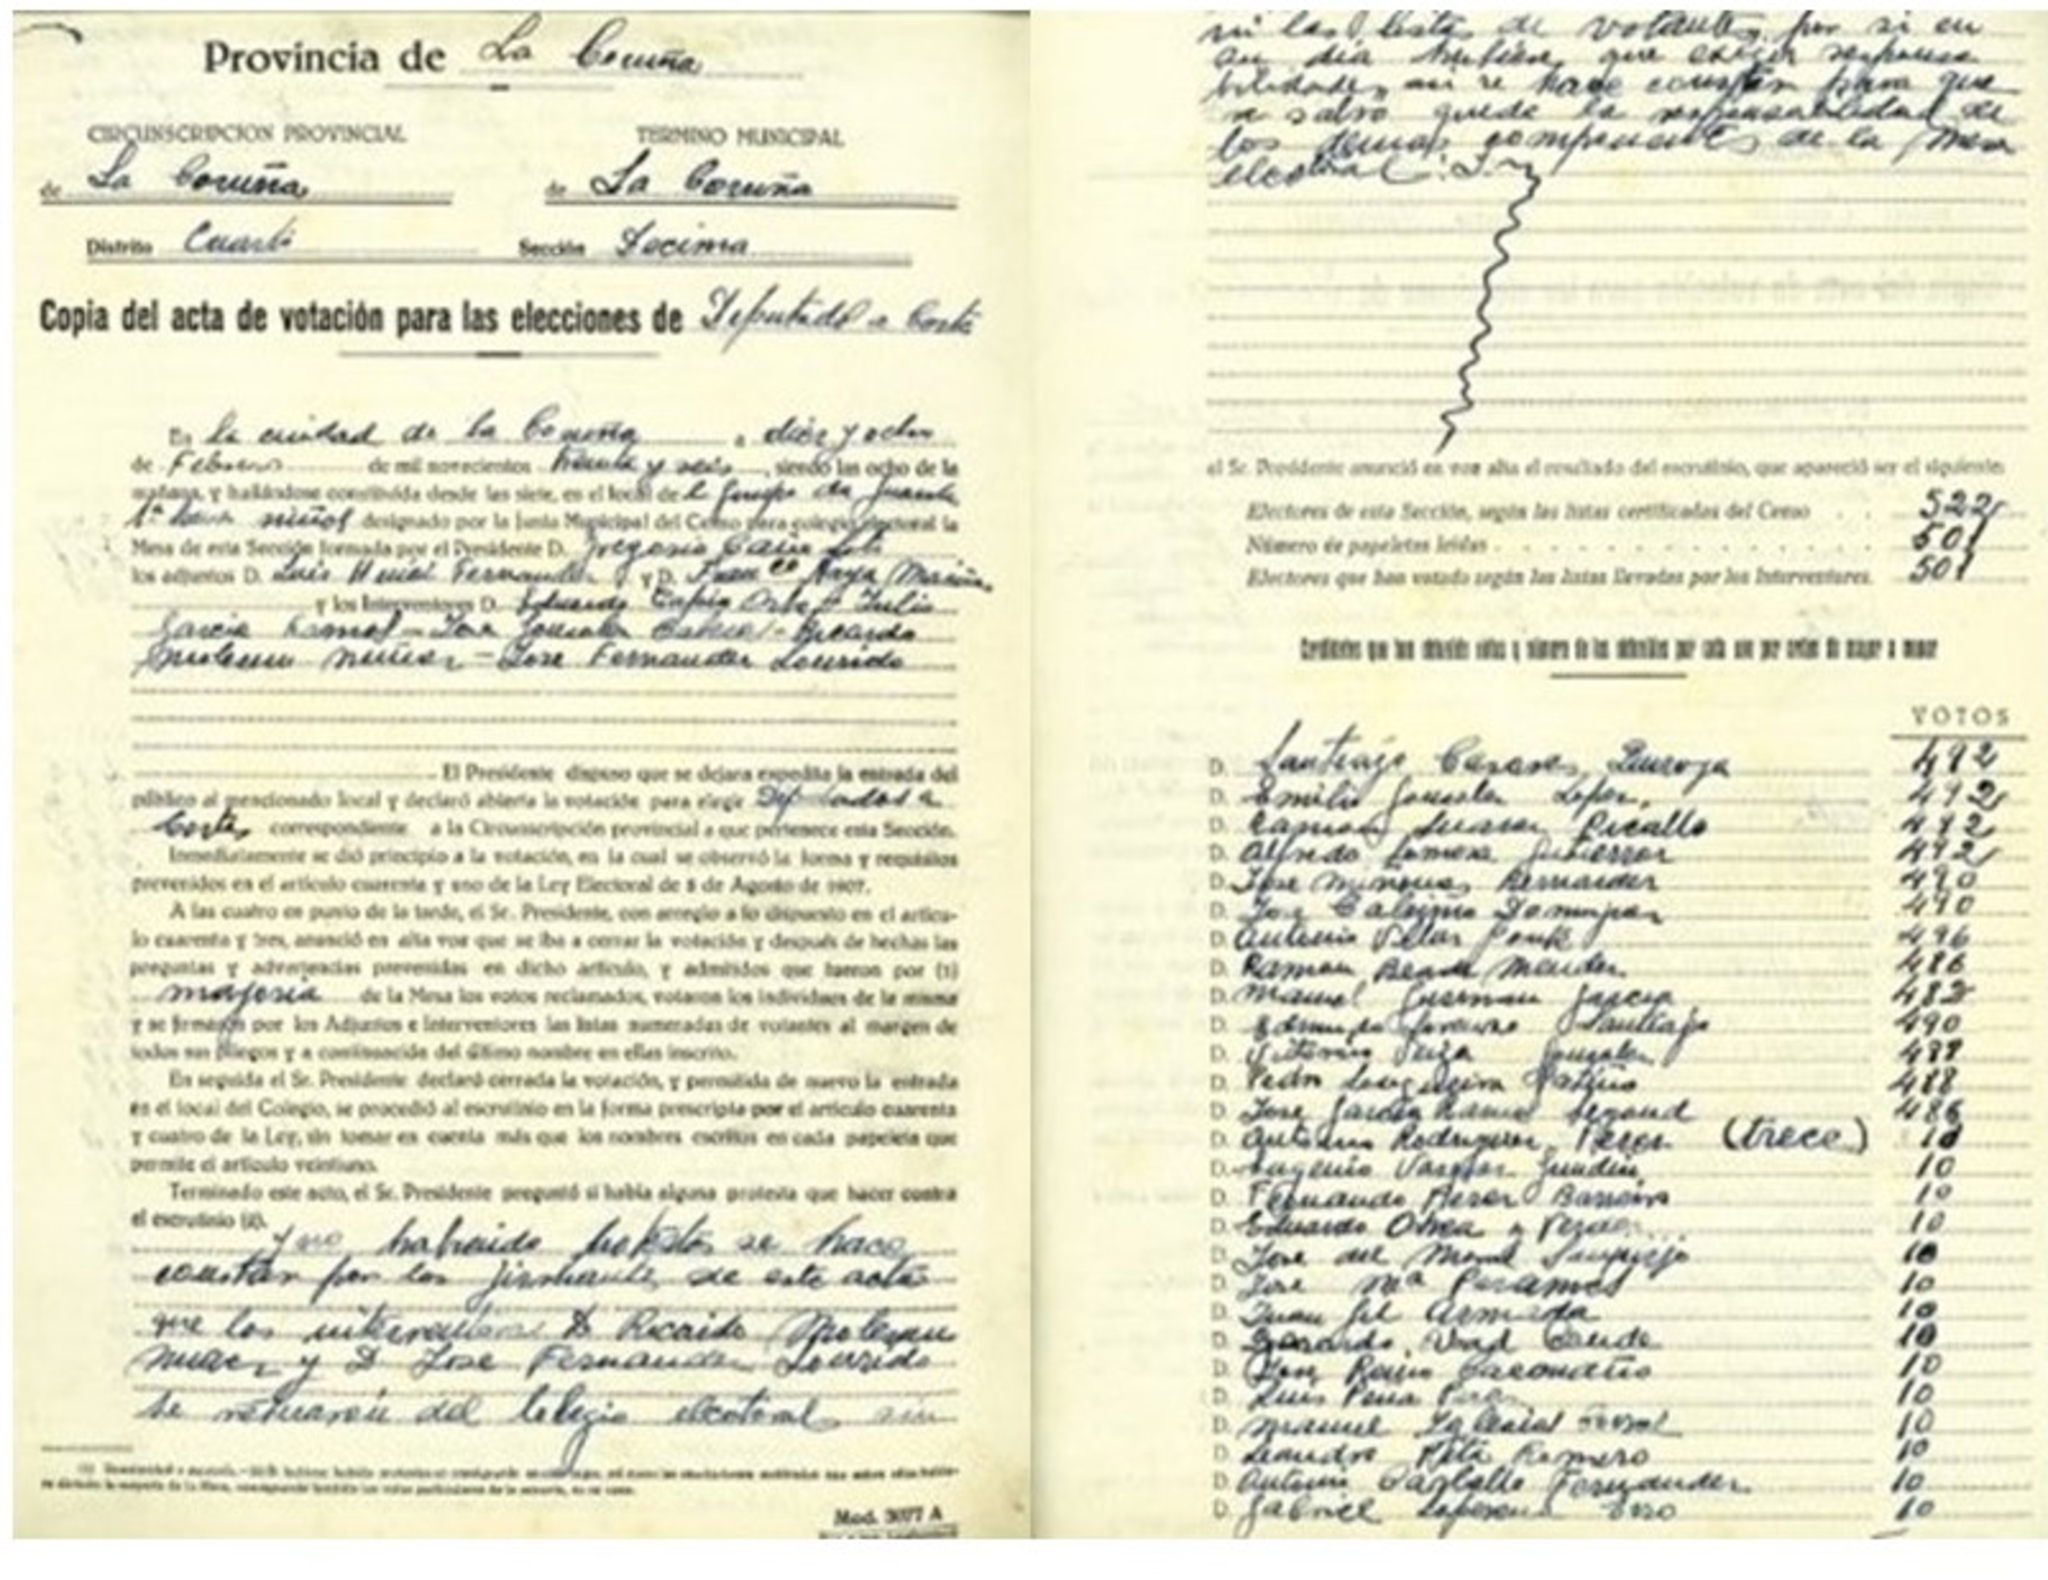 Provincia de La Coruña
CIRCUNSCRIPCION PROVINCIAL
de La Coruña
TERMINO MUNICIPAL
de La Coruña
Distrito Cuarto Sección Decima
Copia del acta de votación para las elecciones de Diputado a Cortes
En la ciudad de La Coruña a diez y ocho
de Febrero de mil novecientos treinta y seis, siendo las ocho de la
mañana, y hallándose constituída desde las siete, en el local del Grupo de
niños designado por la Junta Municipal del Censo para colegio electoral la
Mesa de esta Sección formada por el Presidente D. Gregorio
los adjuntos D. Luis Fernandez y D. Franco
y los Interventores D. Eduardo Julio
Garcia Ramos - Jose Gonzalez - Ricardo
Nuñez - Jose Fernandez Lourido
El Presidente dispuso que se dejara expedita la entrada del
público al mencionado local y declaró abierta la votación para elegir Diputados a
Cortes correspondiente a la Circunscripción provincial a que pertenece esta Sección.
Inmediatamente se dió principio a la votación, en la cual se observó la forma y requisitos
prevenidos en el artículo cuarenta y uno de la Ley Electoral de 8 de Agosto de 1907.
A las cuatro en punto de la tarde, el Sr. Presidente, con arreglo a lo dispuesto en el artícu-
lo cuarenta y tres, anunció en alta voz que se iba a cerrar la votación y después de hechas las
preguntas y advertencias prevenidas en dicho artículo, y admitidos que fueron por (1)
mayoria de la Mesa los votos reclamados, votaron los individuos de la misma
y se firmaron por los Adjuntos e Interventores las listas numeradas de votantes al margen de
todos sus pliegos y a continuación del último nombre en ellas inscrito.
En seguida el Sr. Presidente declaró cerrada la votación, y permitida de nuevo la entrada
en el local del Colegio, se procedió al escrutinio en la forma prescripta por el artículo cuarenta
y cuatro de la Ley, sin tomar en cuenta más que los nombres escritos en cada papeleta que
permite el artículo veintiuno.
Terminado este acto, el Sr. Presidente preguntó si había alguna protesta que hacer contra
el escrutinio (2).
y no habiendo protestas se hace
constar por los firmantes de este acta
que los interventores D Ricardo
Nuñez y D. Jose Fernandez Lourido
se retiraron del Colegio electoral, sin
Mod. 3077 A
ni las listas de votantes, por si en
su dia hubiese que exigir responsa
bilidades, asi se hace constar para que
a salvo quede la responsabilidad de
los demas componentes de la Mesa
electoral
el Sr. Presidente anunció en voz alta el resultado del escrutinio, que apareció ser el siguiente:
Electores de esta Sección, según las listas certificadas del Censo . . 522
Número de papeletas leidas . . . . . 501
Electores que han votado según las listas llevadas por los Interventores. 501
Candidatos que han obtenido votos y número de los obtenidos por cada uno por orden de mayor a menor
VOTOS
D. Santiago Casares Quiroga 492
D. Emilio Gonzalez Lopez, 492
D. Ramon Suarez Picallo 492
D. Alfredo Somoza Gutierrez 492
D. Jose Miñones Bernardez 490
D. Jose Calviño Dominguez 490
D. Antonio Villar Ponte 496
D. Ramon Beade Mendez 486
D. Manuel Guzman Garcia 482
D. Edmundo Lorenzo Santiago 490
D. Victorino Veiga Gonzalez 488
D. Pedro Longueira Patiño 488
D. Jose Garcia Ramos Segond 486
D. Antonio Rodriguez Perez (trece) 10
D. Eugenio Vazquez Gundin 10
D. Fernando Perez Barreiro 10
D. Eduardo Ozores 10
D. Jose del Moral Sanjurjo 10
D. Jose Mª Paramos 10
D. Juan Gil Armada 10
D. Gerardo Abad Conde 10
D. Jose Reino Caamaño 10
D. Luis Peña 10
D. Manuel Iglesias Corral 10
D. Leandro Pita Romero 10
D. Antonio Carballo Fernandez 10
D. Gabriel 10